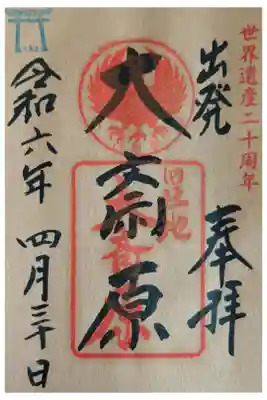 世界遺産二十周年
出発
奉拝
大斎原
旧社地
令和六年 四月三十日